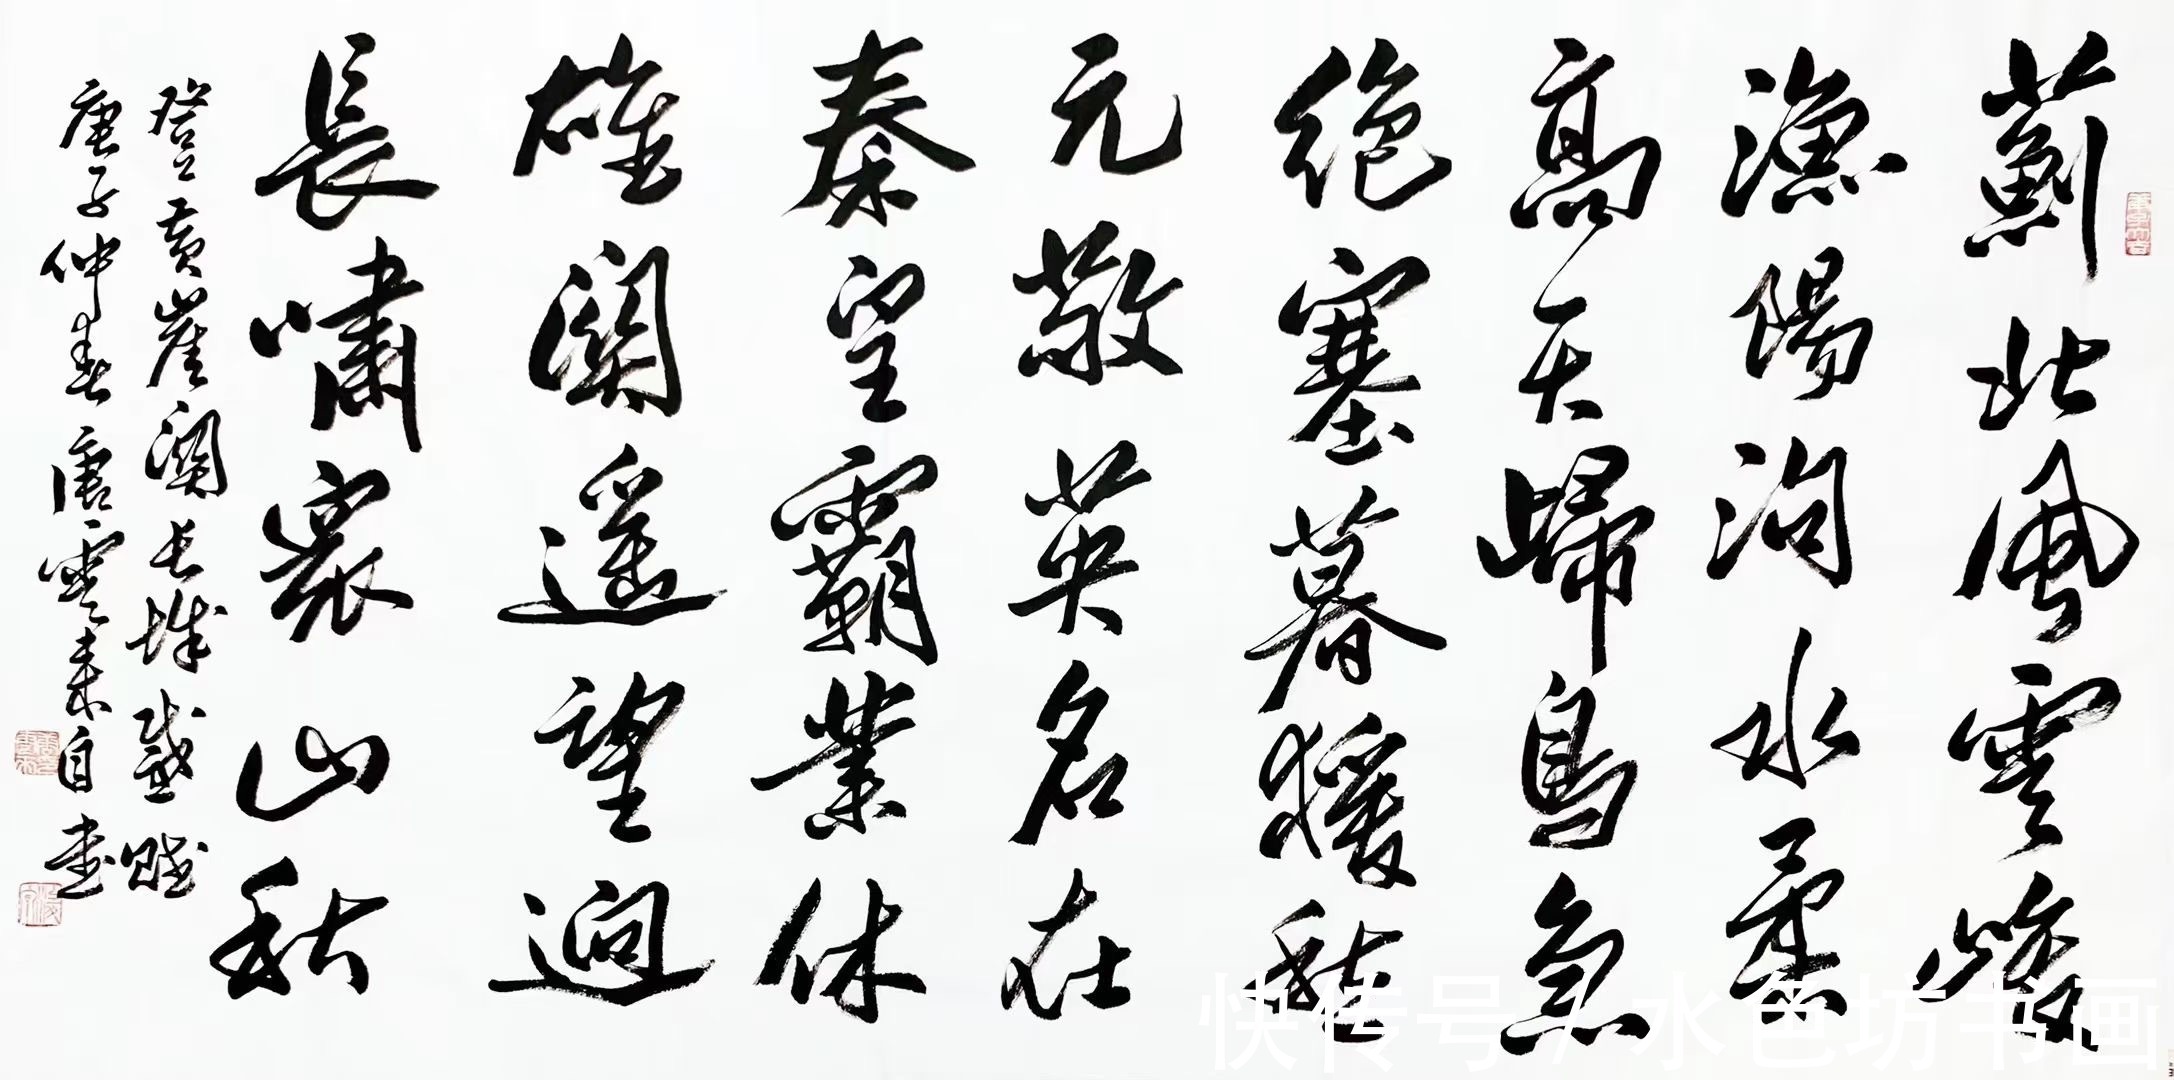 薊北風雲嶮
漁陽泃水柔
高天歸鳥急
絕塞暮猨愁
元敬英名在
秦皇霸業休
雄關遥望迥
長嘯裂山秋
登黄崖關長城感賦
庚子仲春唐雲來自書
快传号/水色坊书画